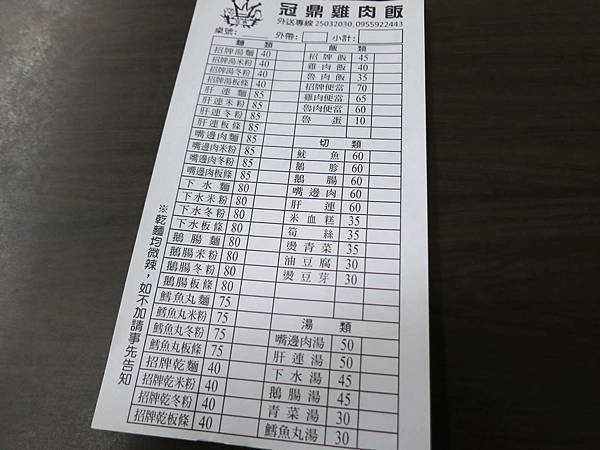 冠鼎雞肉飯
外送專線 25032030, 0955922443
桌號: 外帶: 小計:
麵類
招牌湯麵 40
招牌湯米粉 40
招牌湯冬粉 40
招牌湯板條 40
肝連麵 85
肝連米粉 85
肝連冬粉 85
肝連板條 85
嘴邊肉麵 85
嘴邊肉米粉 85
嘴邊肉冬粉 85
嘴邊肉板條 85
下水麵 80
下水米粉 80
下水冬粉 80
下水板條 80
鵝腸麵 80
鵝腸米粉 80
鵝腸冬粉 80
鵝腸板條 80
鱈魚丸麵 75
鱈魚丸米粉 75
鱈魚丸冬粉 75
鱈魚丸板條 75
招牌乾麵 40
招牌乾米粉 40
招牌乾冬粉 40
招牌乾板條 40
飯類
招牌飯 45
雞肉飯 40
魯肉飯 35
招牌便當 70
雞肉便當 65
魯肉便當 60
魯蛋 10
切類
魷魚 60
鵝胗 60
鵝腸 60
嘴邊肉 60
肝連 60
米血糕 35
筍絲 35
燙青菜 35
油豆腐 30
燙豆芽 30
湯類
嘴邊肉湯 50
肝連湯 50
下水湯 45
鵝腸湯 45
青菜湯 30
鱈魚丸湯 30
※乾麵均微辣，如不加請事先告知